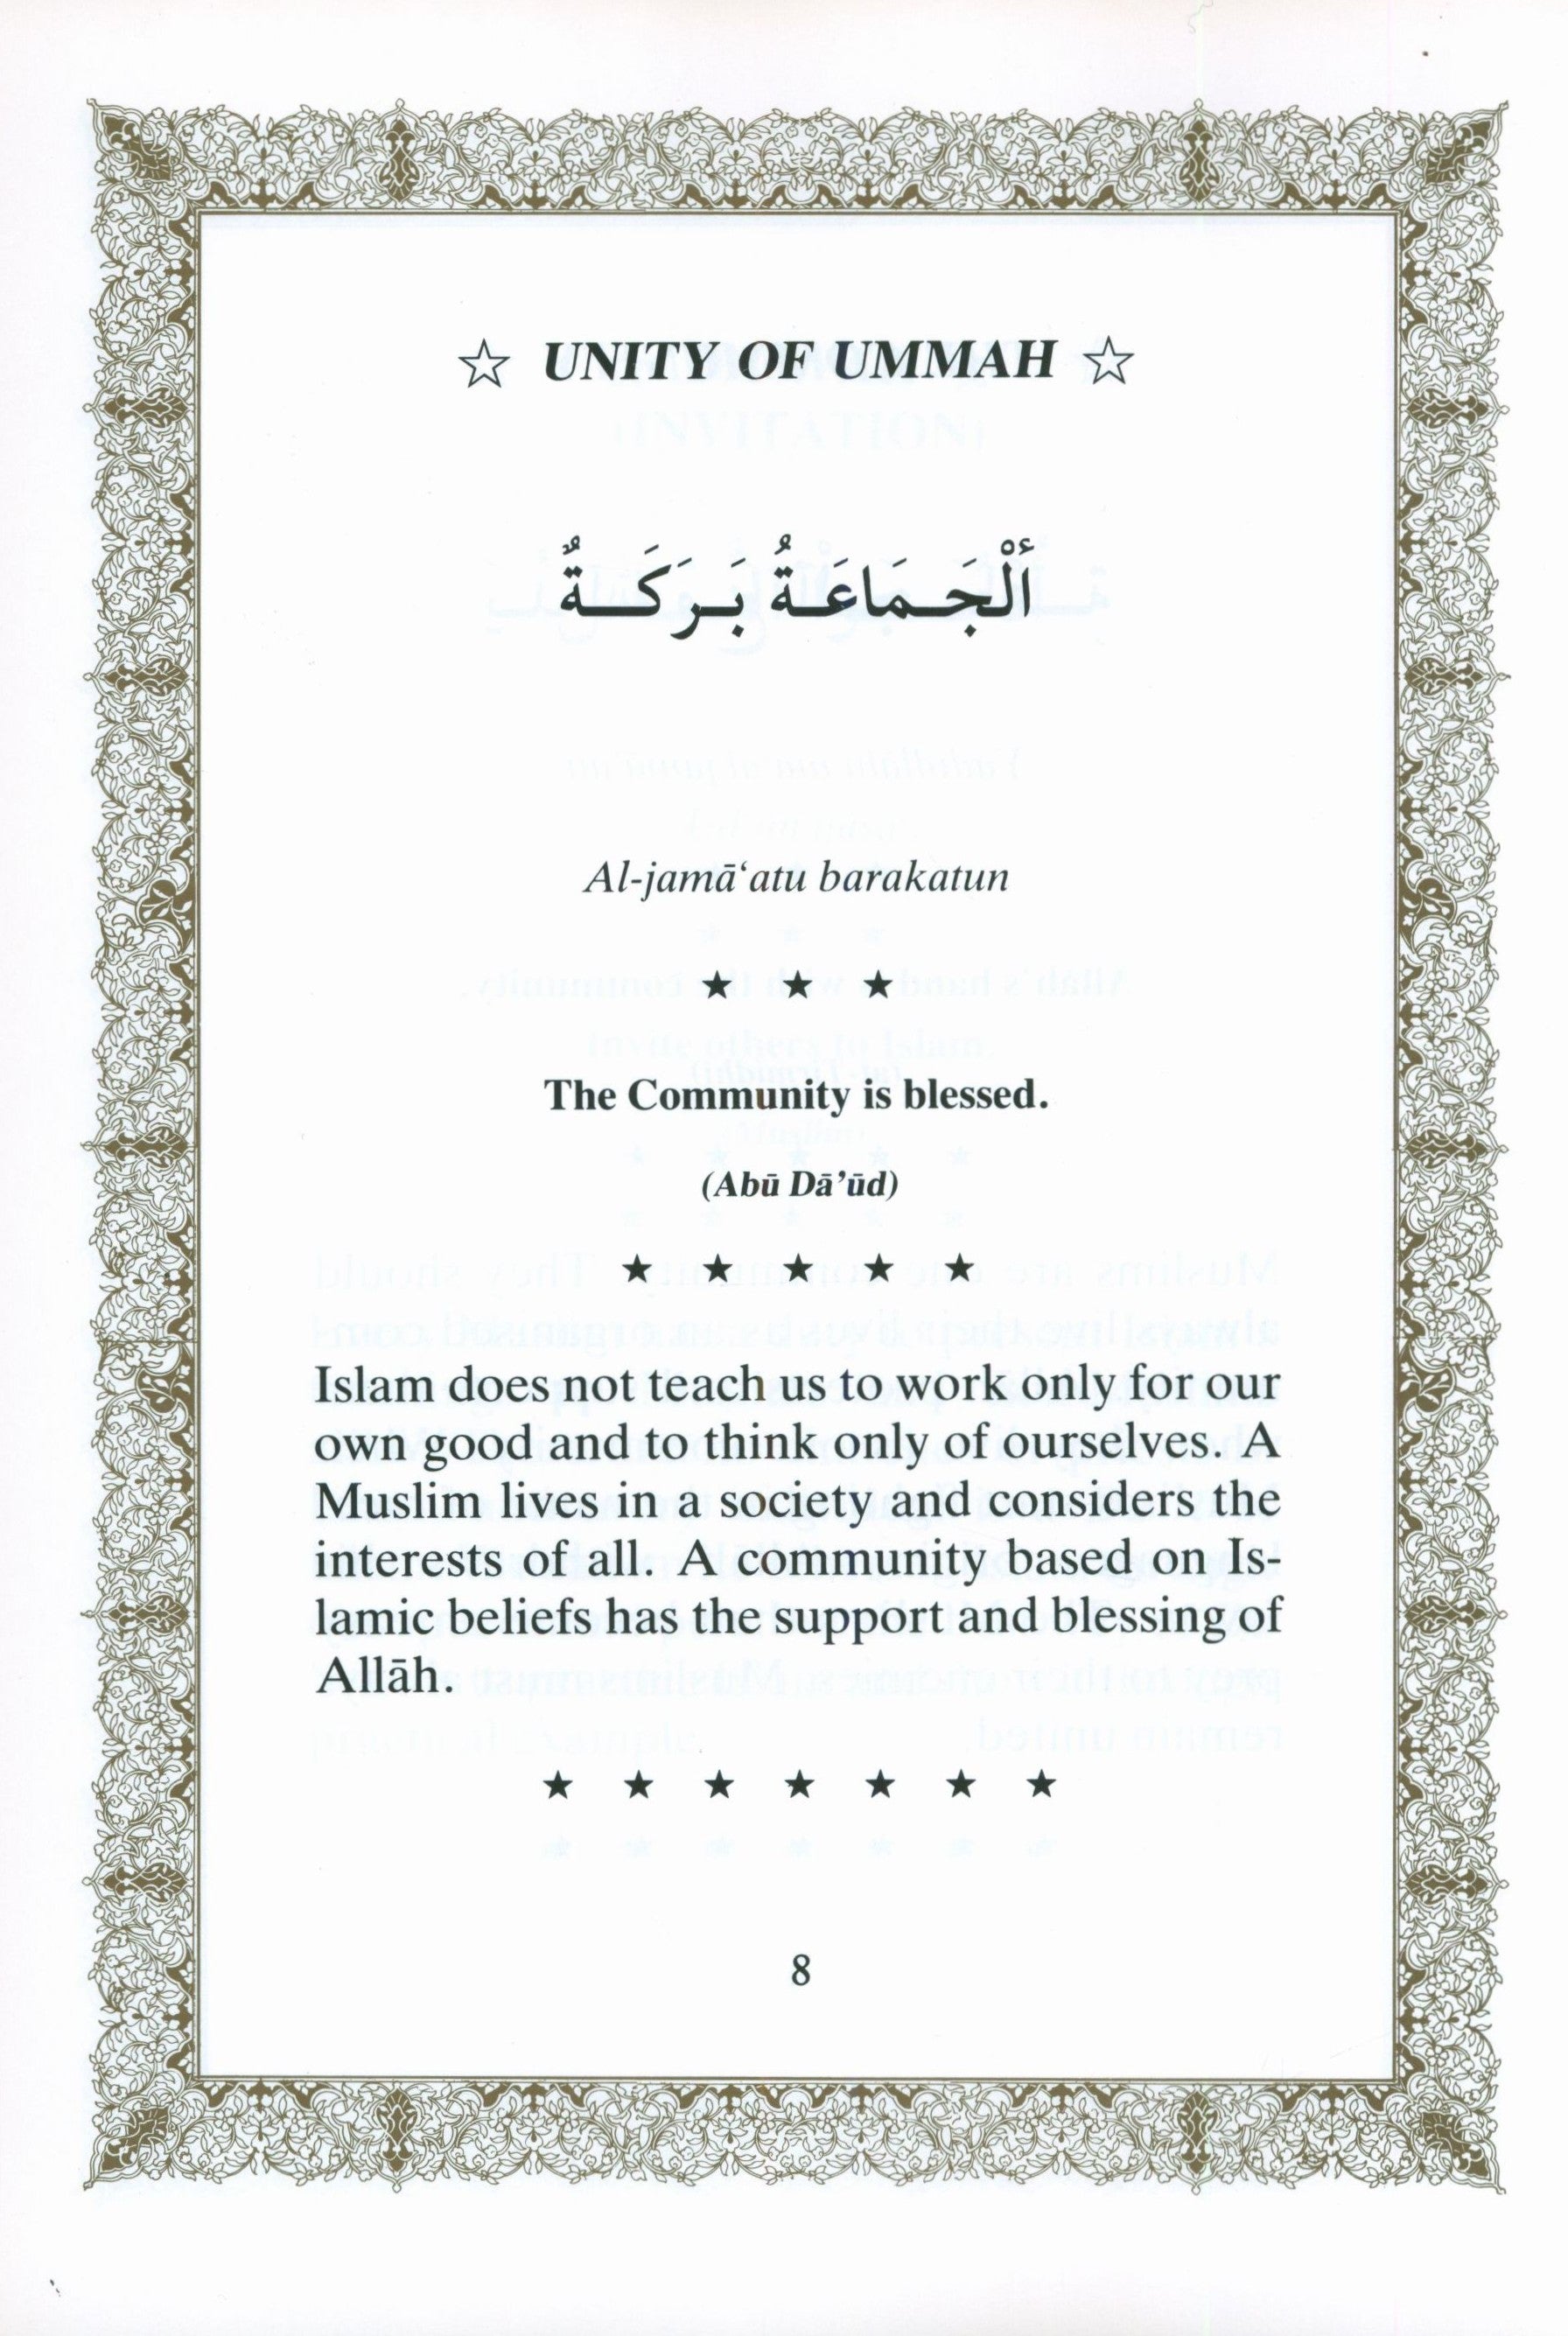 ☆ UNITY OF UMMAH ☆
أَلْجَمَاعَةُ بَرَكَةٌ
Al-jamā‘atu barakatun
★ ★ ★
The Community is blessed.
(Abū Dā’ūd)
★ ★ ★ ★ ★
Islam does not teach us to work only for our
own good and to think only of ourselves. A
Muslim lives in a society and considers the
interests of all. A community based on Is-
lamic beliefs has the support and blessing of
Allāh.
★ ★ ★ ★ ★ ★ ★
8